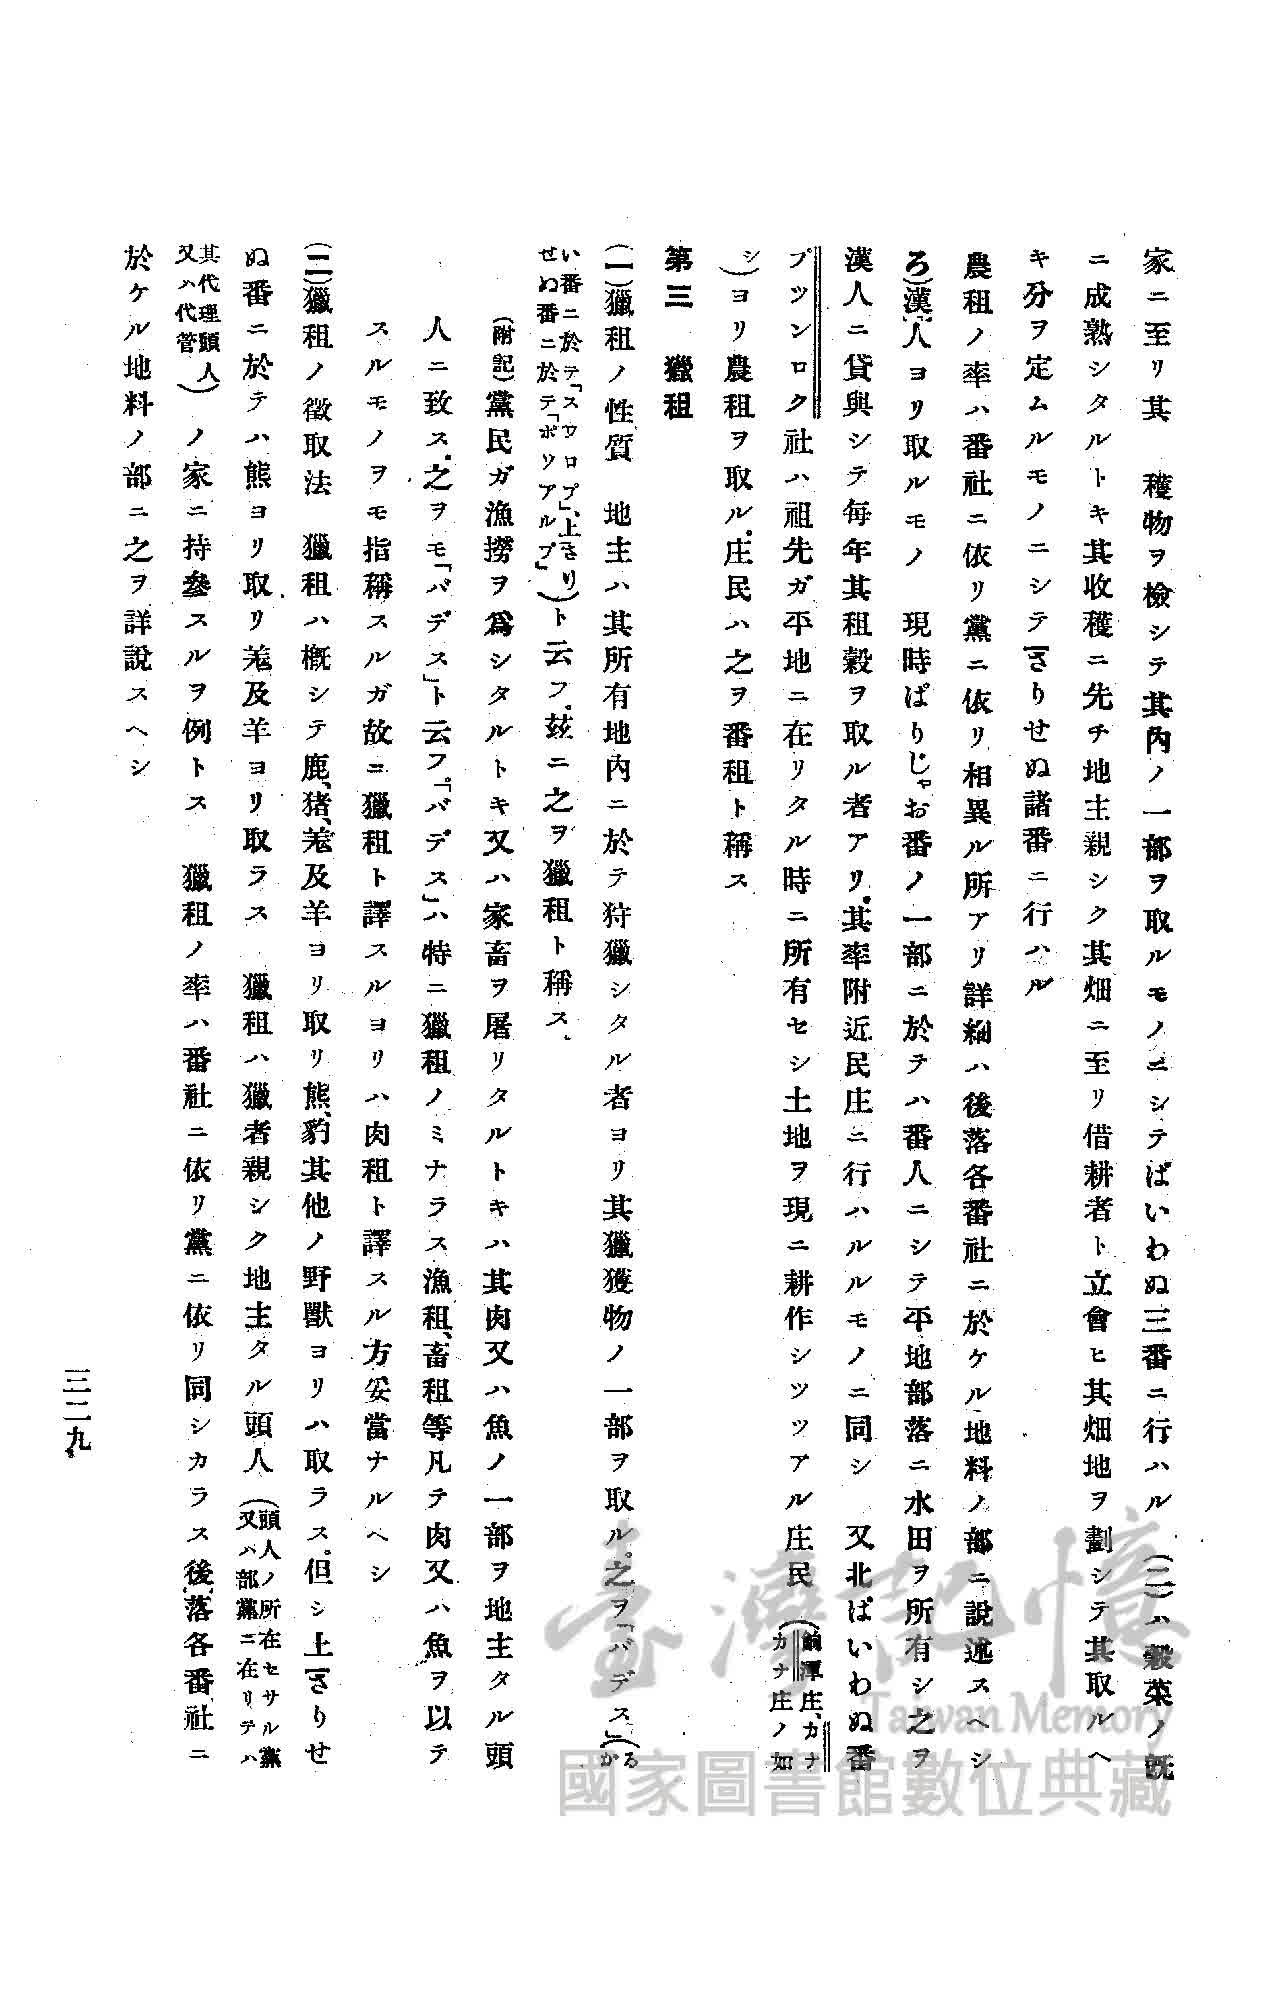 家ニ至リ其　穫物ヲ檢シテ其內ノ一部ヲ取ルモノニシテぱいわぬ三番ニ行ハル　(二)ハ穀菜ノ既
ニ成熟シタルトキ其收穫ニ先チ地主親シク其畑ニ至リ借耕者ト立會ヒ其畑地ヲ劃シテ其取ルヘ
キ分ヲ定ムルモノニシテさりせぬ諸番ニ行ハル
農租ノ率ハ番社ニ依リ黨ニ依リ相異ル所アリ詳細ハ後落各番社ニ於ケル地料ノ部ニ說述スヘシ
ろ)漢人ヨリ取ルモノ　現時ぱりじゃお番ノ一部ニ於テハ番人ニシテ平地部落ニ水田ヲ所有シ之ヲ
漢人ニ貸與シテ每年其租穀ヲ取ル者アリ.其率附近民庄ニ行ハルルモノニ同シ　又北ぱいわぬ番
プツンロク社ハ祖先ガ平地ニ在リタル時ニ所有セシ土地ヲ現ニ耕作シツツアル庄民(前潭庄、カナカナ庄ノ如
シ)ヨリ農租ヲ取ル.庄民ハ之ヲ番租ト稱ス
第三　獵租
(一)獵租ノ性質　地主ハ其所有地內ニ於テ狩獵シタル者ヨリ其獵獲物ノ一部ヲ取ル。之ヲ「バデス」(るか
い番ニ於テ「スワロプ」、上さりせぬ番ニ於テ「ポリアルプ」)ト云フ.茲ニ之ヲ獵租ト稱ス、
(附記)黨民ガ漁撈ヲ爲シタルトキ又ハ家畜ヲ屠リタルトキハ其肉又ハ魚ノ一部ヲ地主タル頭
人ニ致ス.之ヲモ「バデス」ト云フ.「バデス」ハ特ニ獵租ノミナラス漁租、畜租等凡テ肉又ハ魚ヲ以テ
スルモノヲモ指稱スルガ故ニ獵租ト譯スルヨリハ肉租ト譯スル方妥當ナルヘシ
(二)獵租ノ徵取法　獵租ハ槪シテ鹿、猪、羗及羊ヨリ取リ熊、豹其他ノ野獸ヨリハ取ラス。但シ上さりせ
ぬ番ニ於テハ熊ヨリ取リ羗及羊ヨリ取ラス　獵租ハ獵者親シク地主タル頭人(頭人ノ所在セサル黨又ハ部黨ニ在リテハ
其代理頭人又ハ代管)ノ家ニ持參スルヲ例トス　獵租ノ率ハ番社ニ依リ黨ニ依リ同シカラス後落各番社ニ
於ケル地料ノ部ニ之ヲ詳說スヘシ
三二九
臺灣記憶
Taiwan Memory
國家圖書館數位典藏